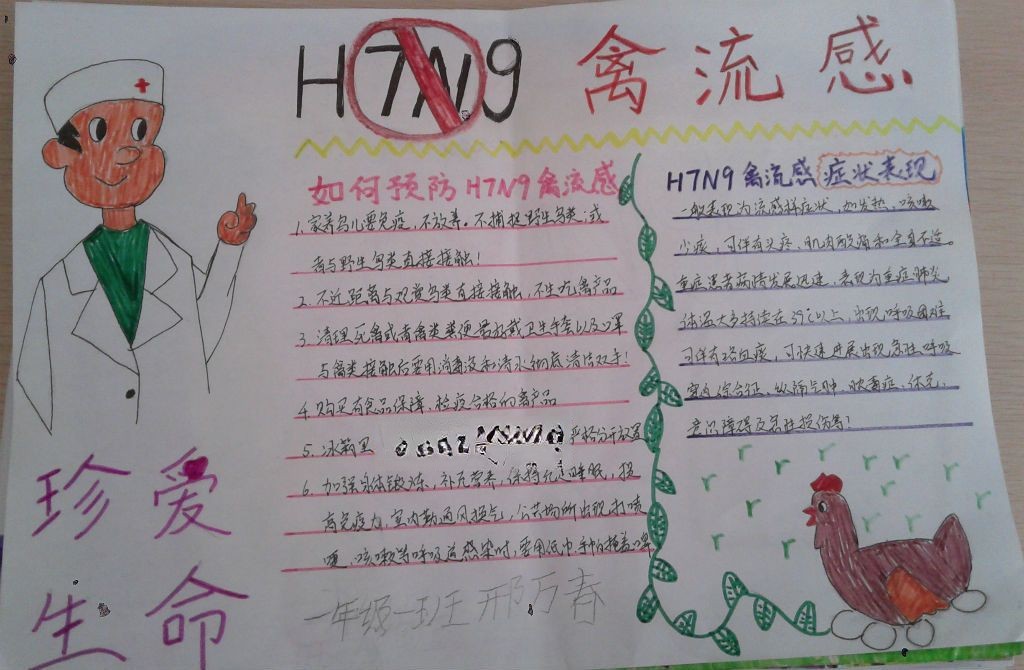 H7N9 禽流感
如何预防H7N9禽流感
1.家养鸟儿要免疫,不放养。不捕捉野生鸟类;或
者与野生鸟类直接接触!
2.不近距离与观赏鸟类直接接触,不生吃禽产品
3.清理死禽或者禽类粪便最好戴卫生手套以及口罩
与禽类接触后要用消毒液和清水彻底清洁双手!
4.购买有食品保障、检疫合格的禽产品
5.冰箱里 严格分开放置
6.加强身体锻炼、补充营养,保持充足睡眠,提
高免疫力,室内勤通风换气,公共场所出现打喷
嚏、咳嗽等呼吸道感染时,要用纸巾、手帕掩盖口鼻
一年级一班 邢万春
H7N9禽流感症状表现
一般表现为流感样症状,如发热、咳嗽
少痰,可伴有头疼、肌肉酸痛和全身不适。
重症患者病情发展迅速,表现为重症肺炎
体温大多持续在39℃以上,出现呼吸困难
可伴有咯血痰,可快速进展出现急性呼吸
窘迫综合征、纵隔气肿、脓毒症、休克、
意识障碍及急性损伤害!
珍爱
生命